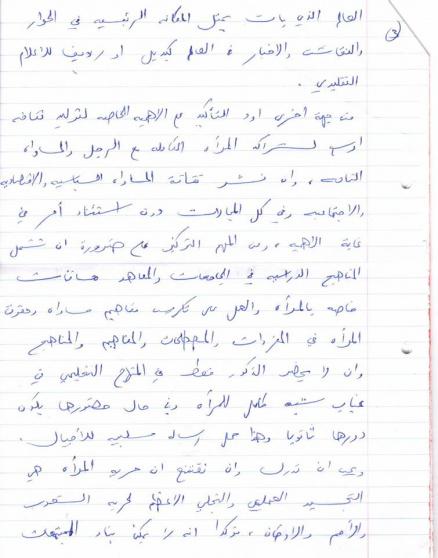 (3)
العالم الذي بات يمثل المكانه الرئيسيه في الحوار
والنقاشات والاخبار في العالم كبديل او رديف للاعلام
التقليدي.
من جهة اخرى اود التأكيد على الاهميه الخاصه لتوليد ثقافه
اوسع لشراكه المرأه الكامله مع الرجل والمساواه
التامه، وان نشر ثقافة المساواه السياسيه والاقتصاديه
والاجتماعيه وفي كل المجالات دون استثناء أمر في
غاية الاهميه، ومن المهم التركيز على ضرورة ان تشمل
المناهج الدراسيه في الجامعات والمعاهد مساقات
خاصه بالمرأه والعمل على تكريس مفاهيم مساواه وحقوق
المرأه في المفردات والمصطلحات والمفاهيم والمناهج
وان لا يحضر الذكور فقط في المنهاج التعليمي في
غياب شبه كامل للمرأه وفي حال حضورها يكون
دورها ثانويا وهذا يحمل رساله سلبيه للأجيال.
ويجب ان ندرك وان نقتنع ان حرية المرأه هي
التجسيد العملي والتجلي الاعظم لحرية الشعوب
والأمم والاوطان، مؤكدا انه لا يمكن بناء المجتمعات